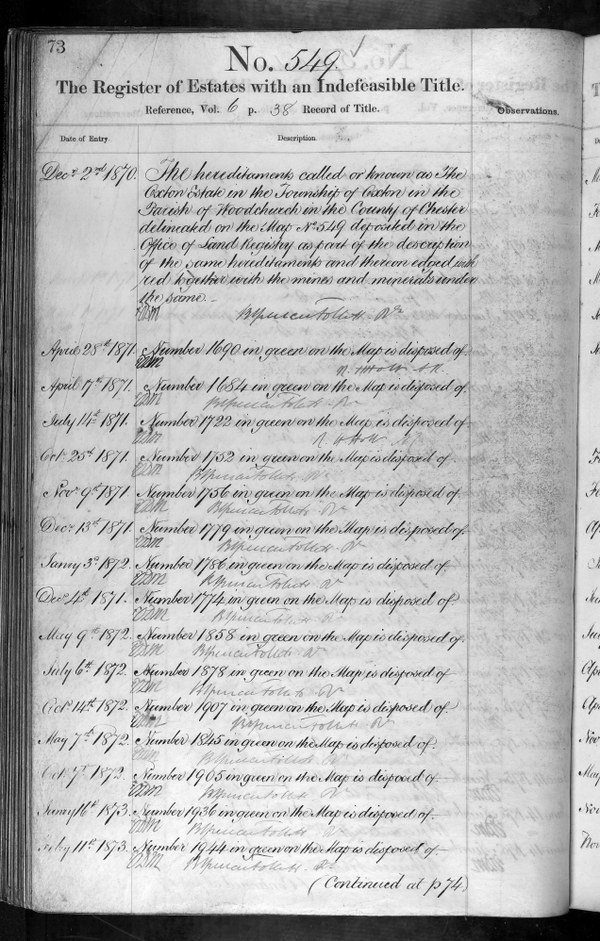 73
No. 549.
The Register of Estates with an Indefeasible Title.
Reference, Vol. 6 p. 38 Record of Title.
Observations.
Date of Entry.
Description.
Decr. 2nd 1870. The hereditaments called or known as The
Oxton Estate in the Township of Oxton in the
Parish of Woodchurch in the County of Chester
delineated on the Map No. 549 deposited in the
Office of Land Registry as part of the description
of the same hereditaments and thereon edged with
red together with the mines and minerals under
the same.
April 28th 1871. Number 1690 in green on the Map is disposed of.
April 17th 1871. Number 1684 in green on the Map is disposed of.
July 14th 1871. Number 1722 in green on the Map is disposed of.
Octr. 25th 1871. Number 1752 in green on the Map is disposed of.
Novr. 9th 1871 Number 1756 in green on the Map is disposed of.
Decr. 13th 1871. Number 1779 in green on the Map is disposed of.
Janry 3rd 1872. Number 1786 in green on the Map is disposed of.
Decr. 4th 1871. Number 1774 in green on the Map is disposed of.
May 9th 1872. Number 1858 in green on the Map is disposed of.
July 6th 1872. Number 1878 in green on the Map is disposed of
Octr. 14th 1872. Number 1907 in green on the Map is disposed of.
May 7th 1872. Number 1845 in green on the Map is disposed of.
Oct. 7th 1872. Number 1905 in green on the Map is disposed of
Janry 16th 1873. Number 1936 in green on the Map is disposed of.
11th 1873. Number 1944 in green on the Map is disposed of.
(Continued at p 74.)